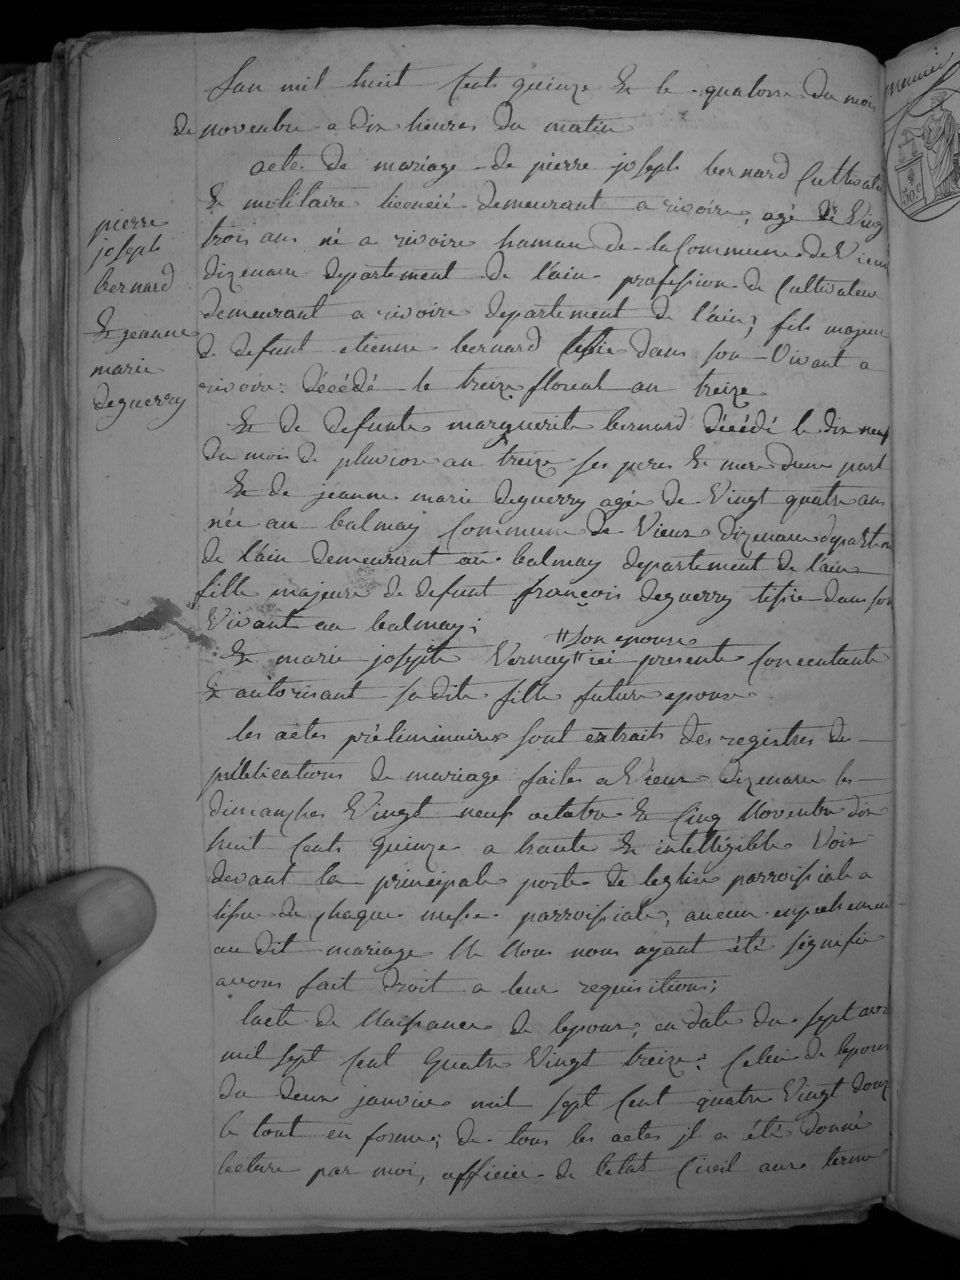 Lan mil huit Cents quinze Et le quatorze du mois
de novembre a dix heures du matin
acte de mariage de pierre joseph bernard Cultivate
Et militaire licencié demeurant a rivoire, agé de Ving
trois ans né a rivoire hamau de la Commune de Vieu
dizenave departement de l'ain profession de Cultivateur
demeurant a rivoire departement de l'ain, fils majeur
de defunt etienne bernard dans son Vivant a
rivoire decédé le treize floreal an treize
Et de defunte marguerite bernard décédé le dix neuf
du mois de pluviose an treize ses peres Et mere dune part
Et de jeanne marie deguerry agée de Vingt quatre ans
née au balmay Commune de Vieux dizenave departem
de l'ain demeurant au balmay departement de l'ain
fille majeure de defunt françois deguerry tissie dans son
Vivant au balmay;
Et marie josephte Vernay # ici presente Concentante
# son epouse
Et autorisant sa dite fille future epouse
les actes préliminaires sont extraits des registres de
publications de mariage faites a Vieux dizenave les
dimanches Vingt neuf octobre Et Cinq Novembre dix
huit Cents quinze a haute Et intelligible Voix
devant la principale porte de leglise parroissiale a
lissue de chaque messe parroissiale, aucun enpechement
au dit mariage Ne Nous nous ayant été signifié
avons fait droit a leur requisitions;
lacte de Naissance de lepoux, en date du sept avri
mil sept Cent Quatre Vingt treize; Celui de lepous
du deux janvier mil sept Cent quatre Vingt douz
le tout en forme; de tous les actes jl a été donné
lecture par moi, officier de l'etat Civil aux terme
pierre
joseph
bernard
Et jeanne
marie
deguerry
50 c.